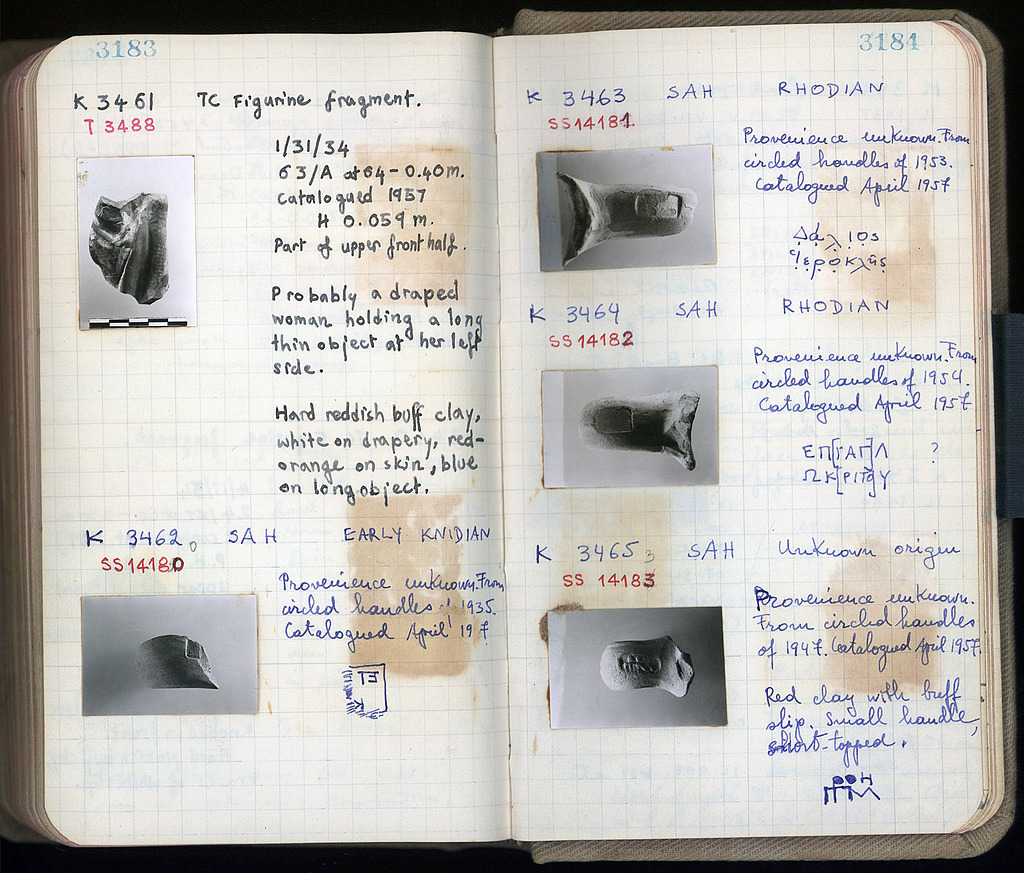 3183
K 3461 TC Figurine fragment.
T 3488
1/31/34
63/A at 64 - 0.40m.
Catalogued 1957
H 0.059 m.
Part of upper front half.
Probably a draped
woman holding a long
thin object at her left
side.
Hard reddish buff clay,
white on drapery, red-
orange on skin, blue
on long object.
K 3462 SAH EARLY KNIDIAN
SS 14180
Provenience unknown. From
circled handles 1935.
Catalogued April 19 7
3184
K 3463 SAH RHODIAN
SS 14181
Provenience unknown. From
circled handles of 1953.
Catalogued April 1957
Δάλιος
Ἱεροκλῆς
K 3464 SAH RHODIAN
SS 14182
Provenience unknown. From
circled handles of 1954.
Catalogued April 1957
ΕΠ[ΙΑΓ]Λ ?
ΩΚ[ΡΙΤ]ΟΥ
K 3465 SAH Unknown origin
SS 14183
Provenience unknown.
From circled handles
of 1947. Catalogued April 1957.
Red clay with buff
slip. Small handle,
short-topped.